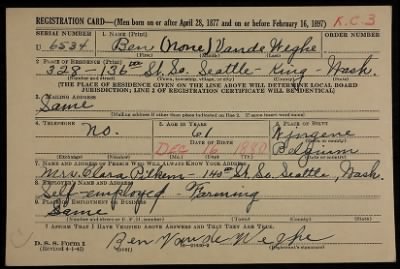 REGISTRATION CARD—(Men born on or after April 28, 1877 and on or before February 16, 1897) R.C.3
SERIAL NUMBER 1. NAME (Print) ORDER NUMBER
U 6534 Ben (None) Vande Weghe
(First) (Middle) (Last)
2. PLACE OF RESIDENCE (Print)
328-136th St. So. Seattle - King - Wash.
(Number and street) (Town, township, village, or city) (County) (State)
[THE PLACE OF RESIDENCE GIVEN ON THE LINE ABOVE WILL DETERMINE LOCAL BOARD
JURISDICTION; LINE 2 OF REGISTRATION CERTIFICATE WILL BE IDENTICAL]
3. MAILING ADDRESS
Same
[Mailing address if other than place indicated on line 2. If same insert word same]
4. TELEPHONE 5. AGE IN YEARS 6. PLACE OF BIRTH
No. 61
DATE OF BIRTH (Town or county)
DEC 16 1880 Belgium
(Exchange) (Number) (Mo.) (Day) (Yr.) (State or country)
7. NAME AND ADDRESS OF PERSON WHO WILL ALWAYS KNOW YOUR ADDRESS
Mrs. Clara - 140th St. So. Seattle, Wash.
8. EMPLOYER'S NAME AND ADDRESS
Self-employed - Farming
9. PLACE OF EMPLOYMENT OR BUSINESS
Same
(Number and street or R. F. D. number) (Town) (County) (State)
I AFFIRM THAT I HAVE VERIFIED ABOVE ANSWERS AND THAT THEY ARE TRUE.
D. S. S. Form 1
(Revised 4-1-42) (over) Ben Van de Weghe
(Registrant's signature)